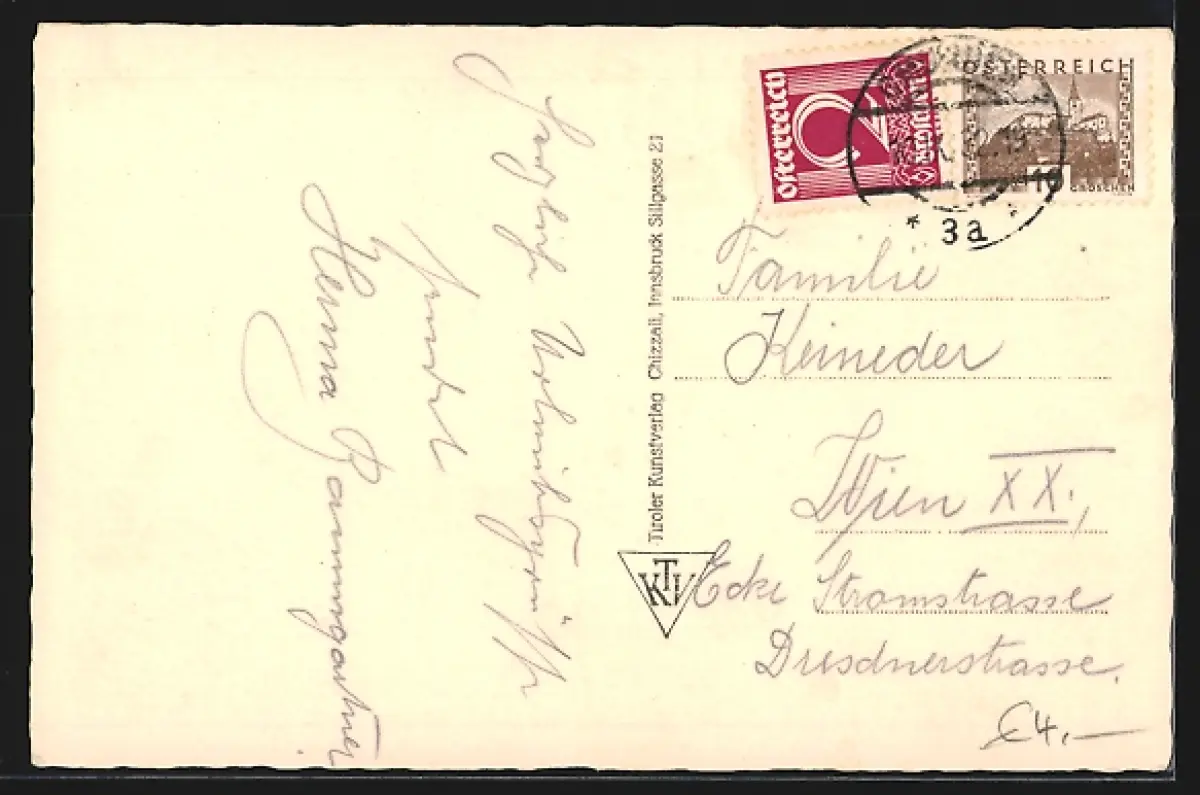 Herzliche Weihnachtsgrüße
sendet
Herma Baumgartner
Tiroler Kunstverlag Chizzali, Innsbruck Sillgasse 21
KTV
österreich
2
Groschen
ÖSTERREICH
GROSCHEN
19
* 3a *
Familie
Keineder
Wien XX,
Ecke Stromstrasse
Dresdnerstrasse.
€4,—